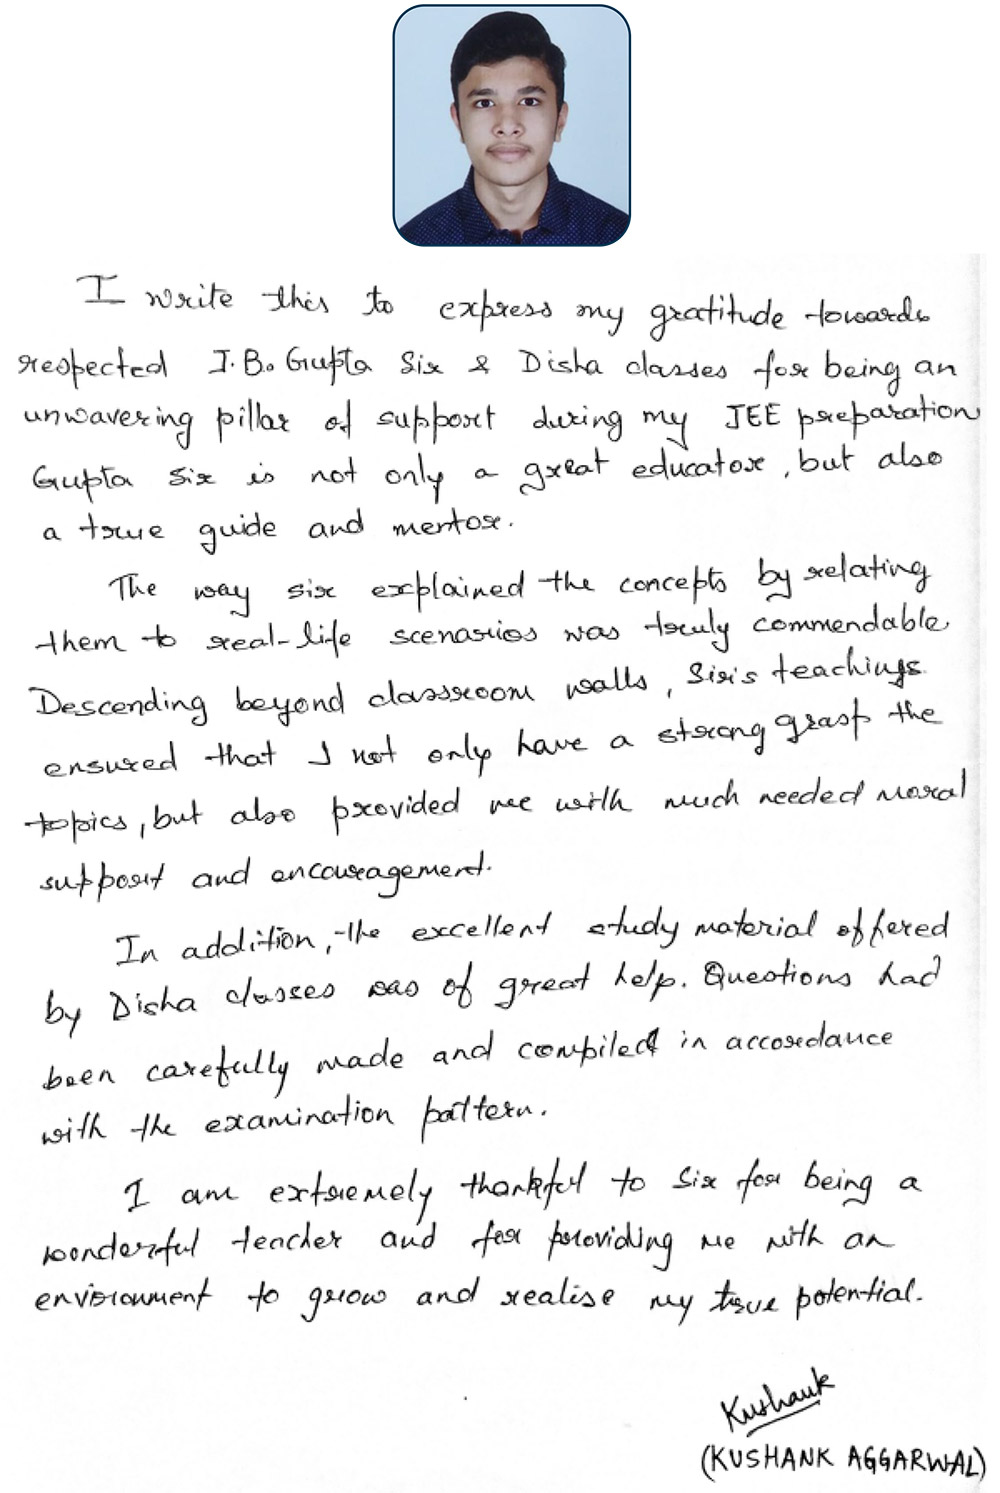 I write this to express my gratitude towards
respected J.B. Gupta Sir & Disha classes for being an
unwavering pillar of support during my JEE preparation
Gupta Sir is not only a great educator, but also
a true guide and mentor.
The way sir explained the concepts by relating
them to real-life scenarios was truly commendable.
Descending beyond classroom walls, Sir's teachings
ensured that I not only have a strong grasp the
topics, but also provided me with much needed moral
support and encouragement.
In addition, the excellent study material offered
by Disha classes was of great help. Questions had
been carefully made and compiled in accordance
with the examination pattern.
I am extremely thankful to Sir for being a
wonderful teacher and for providing me with an
environment to grow and realise my true potential.
Kushank
(KUSHANK AGGARWAL)